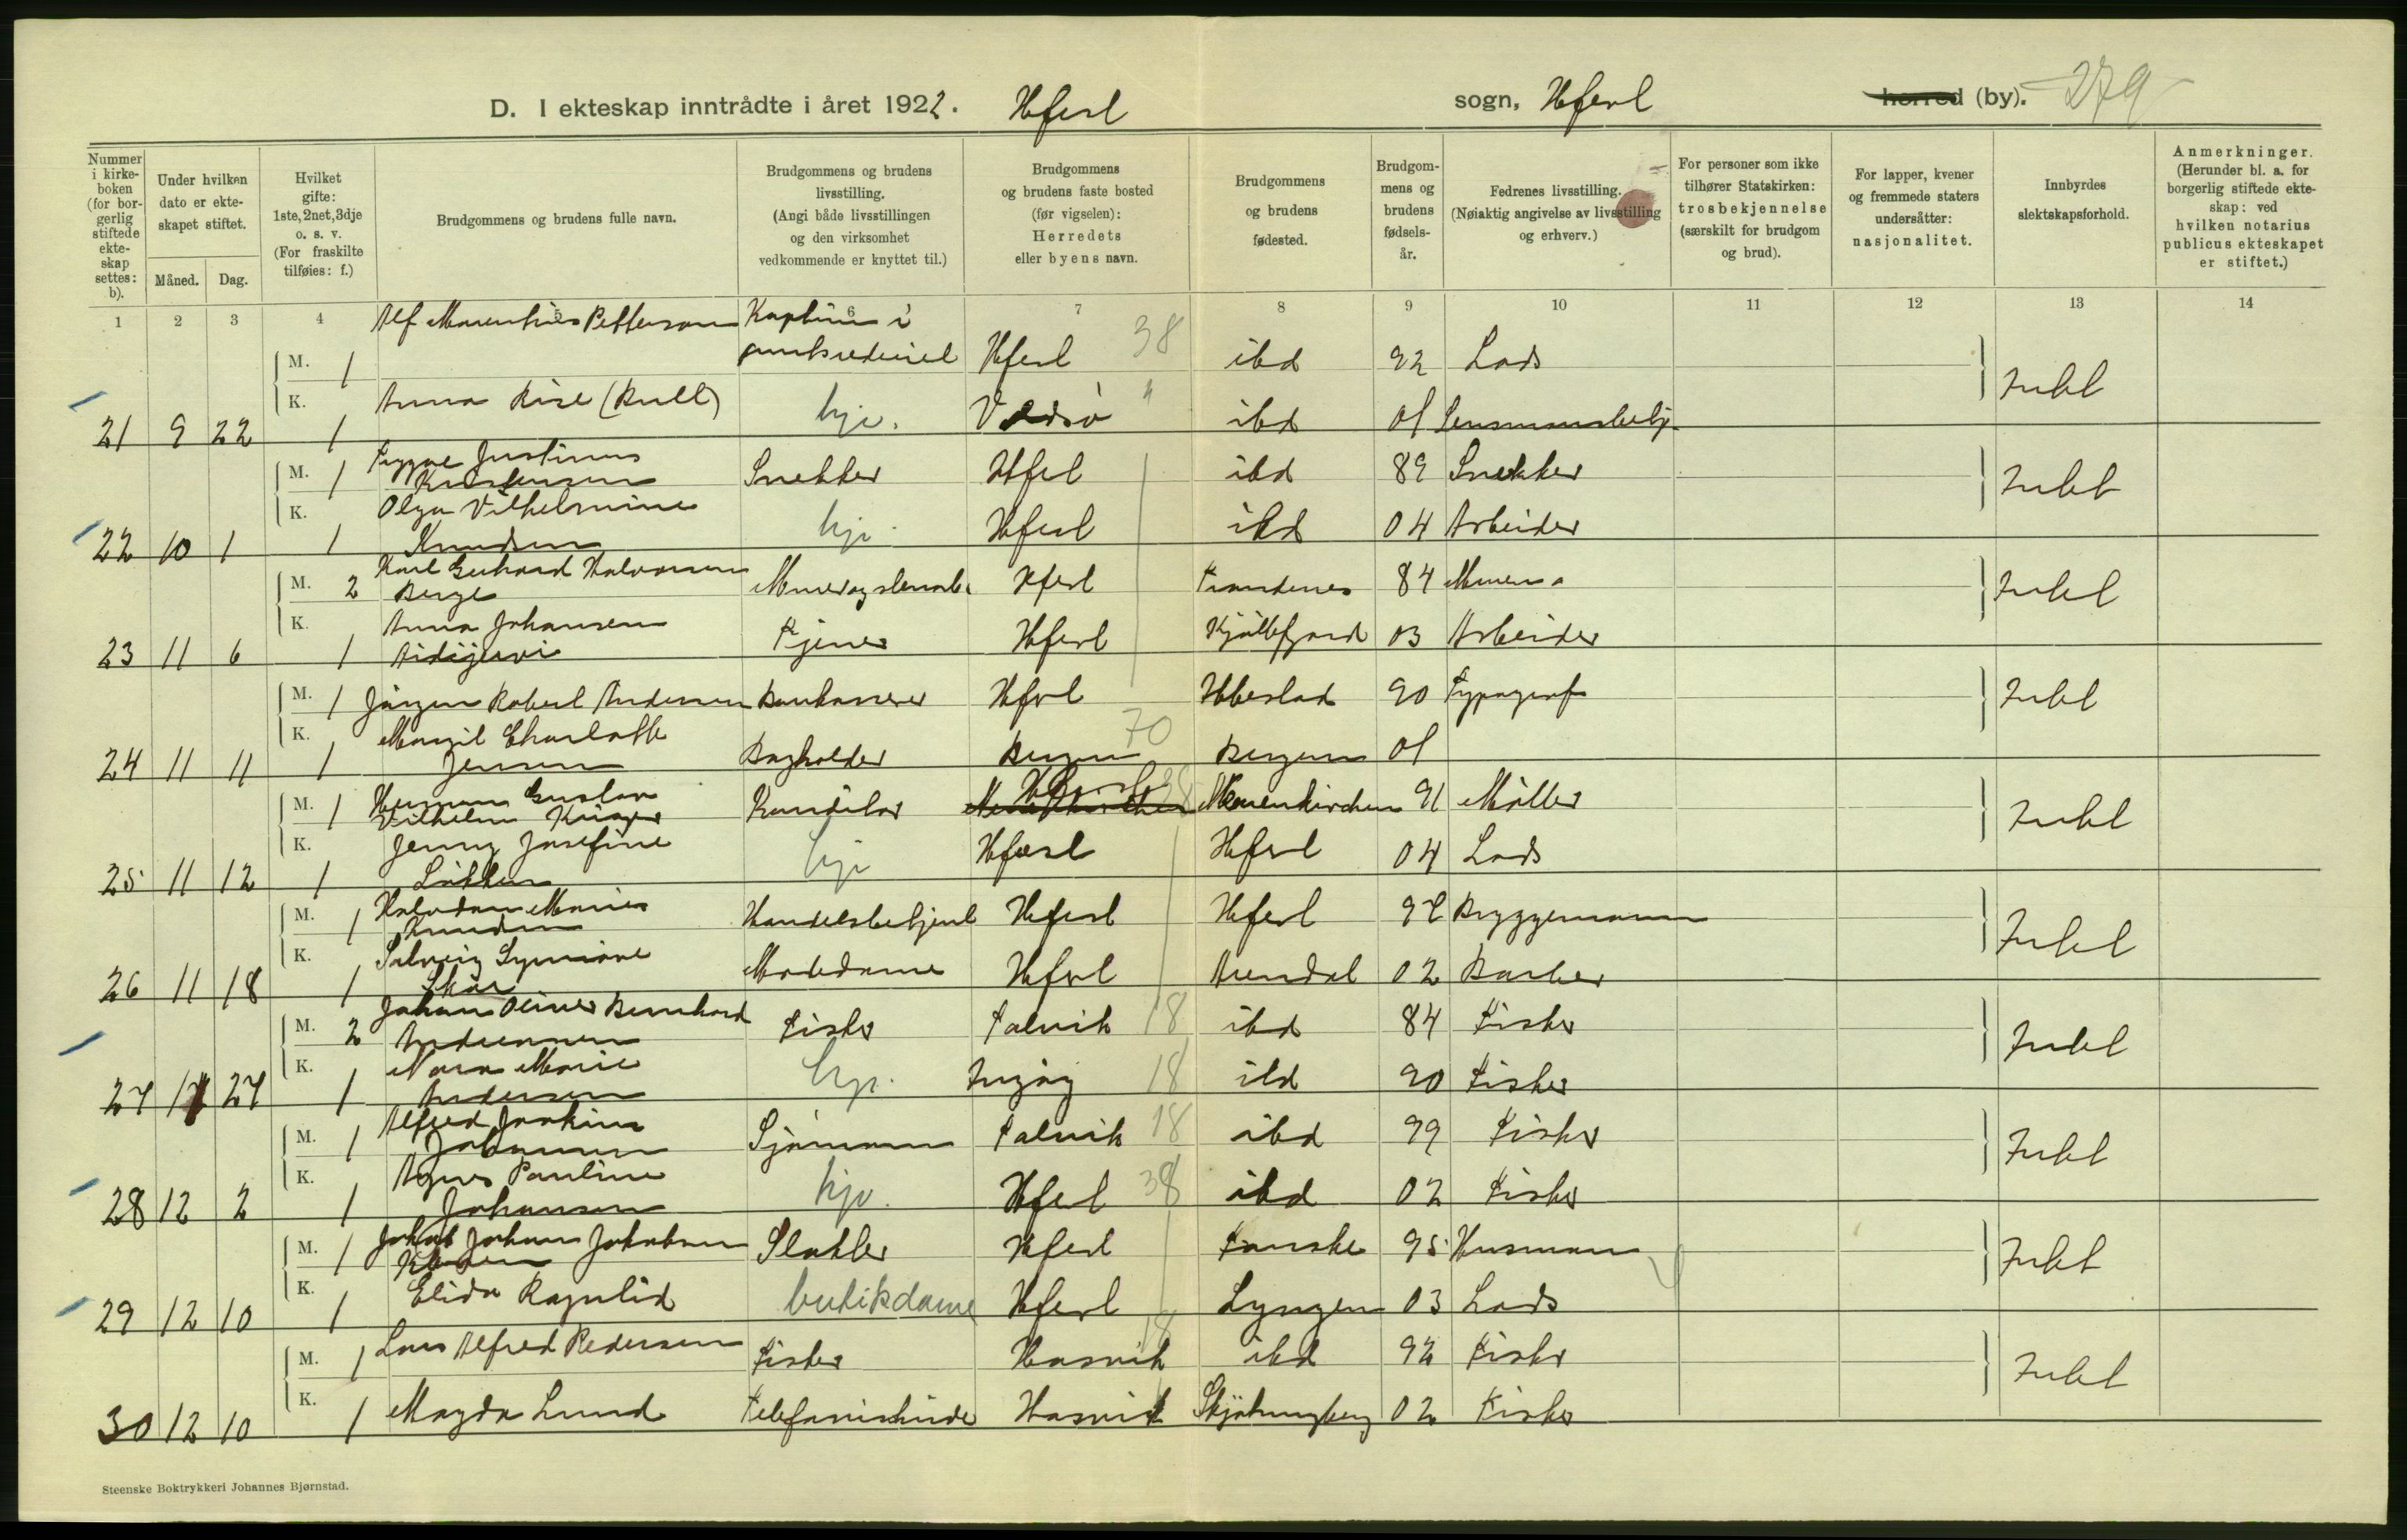 D. I ekteskap inntrådte i året 1922. Hfest sogn, Hfest herred (by). 279
Nummer i kirkeboken (for borgerlig stiftede ekteskap settes: b).
Under hvilken dato er ekteskapet stiftet.
Måned. Dag.
Hvilket gifte: 1ste, 2net, 3dje o. s. v. (For fraskilte tilføies: f.)
Brudgommens og brudens fulle navn.
Brudgommens og brudens livsstilling. (Angi både livsstillingen og den virksomhet vedkommende er knyttet til.)
Brudgommens og brudens faste bosted (før vigselen): Herredets eller byens navn.
Brudgommens og brudens fødested.
Brudgommens og brudens fødselsår.
Fedrenes livsstilling. (Nøiaktig angivelse av livsstilling og erhverv.)
For personer som ikke tilhører Statskirken: trosbekjennelse (særskilt for brudgom og brud).
For lapper, kvener og fremmede staters undersåtter: nasjonalitet.
Innbyrdes slektskapsforhold.
Anmerkninger. (Herunder bl. a. for borgerlig stiftede ekteskap: ved hvilken notarius publicus ekteskapet er stiftet.)
1 2 3 4 5 6 7 8 9 10 11 12 13 14
M. 1 Alf Petterson Kaptein i Hfest 38 ibd 92 Lods Intet
21 9 22 K. 1 Anna hje. Vadsø " ibd 01 Lensmannsbetj.
M. 1 Trygve Justinus Kristensen Snekker Hfest ibd 89 Snekker Intet
22 10 1 K. 1 Olga Vilhelmine Knudsen hje. Hfest ibd 04 Arbeider
M. 2 Karl Gerhard Halvorsen Berge Hfest Trondenes 84 Murer Intet
23 11 6 K. 1 Anna Johansen Tjener Hfest Kjøllefjord 03 Arbeider
M. 1 Jørgen Robert Andersen Bankkasserer Hfest Ibestad 90 Typograf Intet
24 11 11 K. 1 Margit Charlotte Jensen Bogholder Bergen 70 Bergen 01
M. 1 Herman Gustav Vilhelm Krüger Konditor Hfest 38 91 Møller Intet
25 11 12 K. 1 Jenny Josefine Løkken hje Hfest Hfest 04 Lods
M. 1 Halvdan Marius Knudsen Handelsbetjent Hfest Hfest Bryggemann Intet
26 11 18 K. 1 Solveig Synnøve Skår Motedame Hfest Arendal 02 Barber
M. 2 Johan Oliver Bernhard Andreassen Fisker Talvik 18 ibd 84 Fisker Intet
27 11 27 K. 1 Nora Marie Andersen hje. 18 ibd 90 Fisker
M. 1 Alfred Joakim Johansen Sjømann Talvik 18 ibd 99 Fisker Intet
28 12 2 K. 1 Agnes Pauline Johansen hje. Hfest 38 ibd 02 Fisker
M. 1 Jakob Johan Jakobsen Slakter Hfest Fauske 95 Husmann Intet
29 12 10 K. 1 Elida Ragnhild butikdame Hfest Lyngen 03 Lods
M. 1 Lars Alfred Pedersen Fisker Hasvik 18 ibd 92 Fisker Intet
30 12 10 K. 1 Magda Lund Telefonistinde Hasvik 02 Fisker
Steenske Boktrykkeri Johannes Bjørnstad.